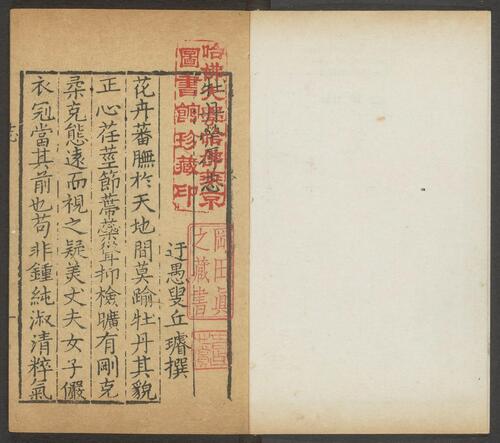 牡丹榮辱志
迂愚叟丘璿撰
花卉蕃膴於天地間莫踰牡丹其貌
正心荏莖節蔕蘂聳抑檢曠有剛克
柔克態遠而視之疑美丈夫女子儼
衣冠當其前也苟非鍾純淑清粹氣
哈佛大學哈佛燕京
圖書館珍藏印
岡田眞
之藏書